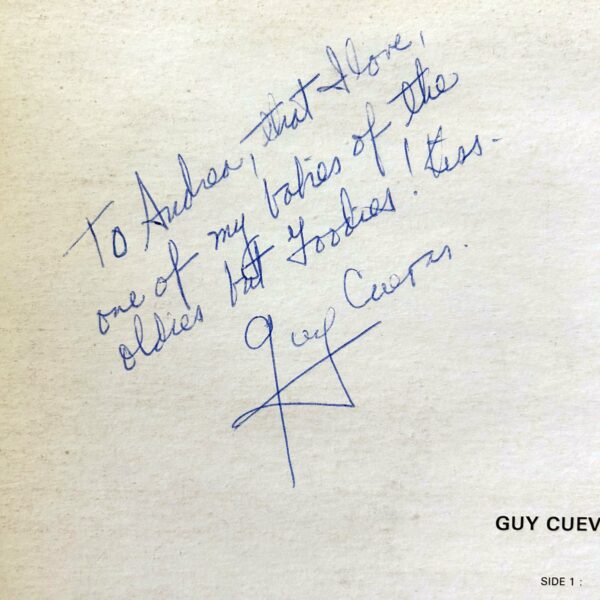 To Andrea, that I love,
one of my babies of the
oldies but Goodies! Kiss.
Guy Cuevas.
GUY CUEV
SIDE 1 :